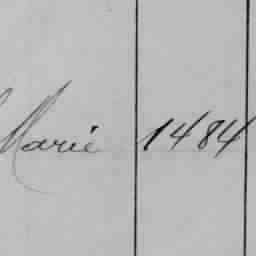 Marie 1484